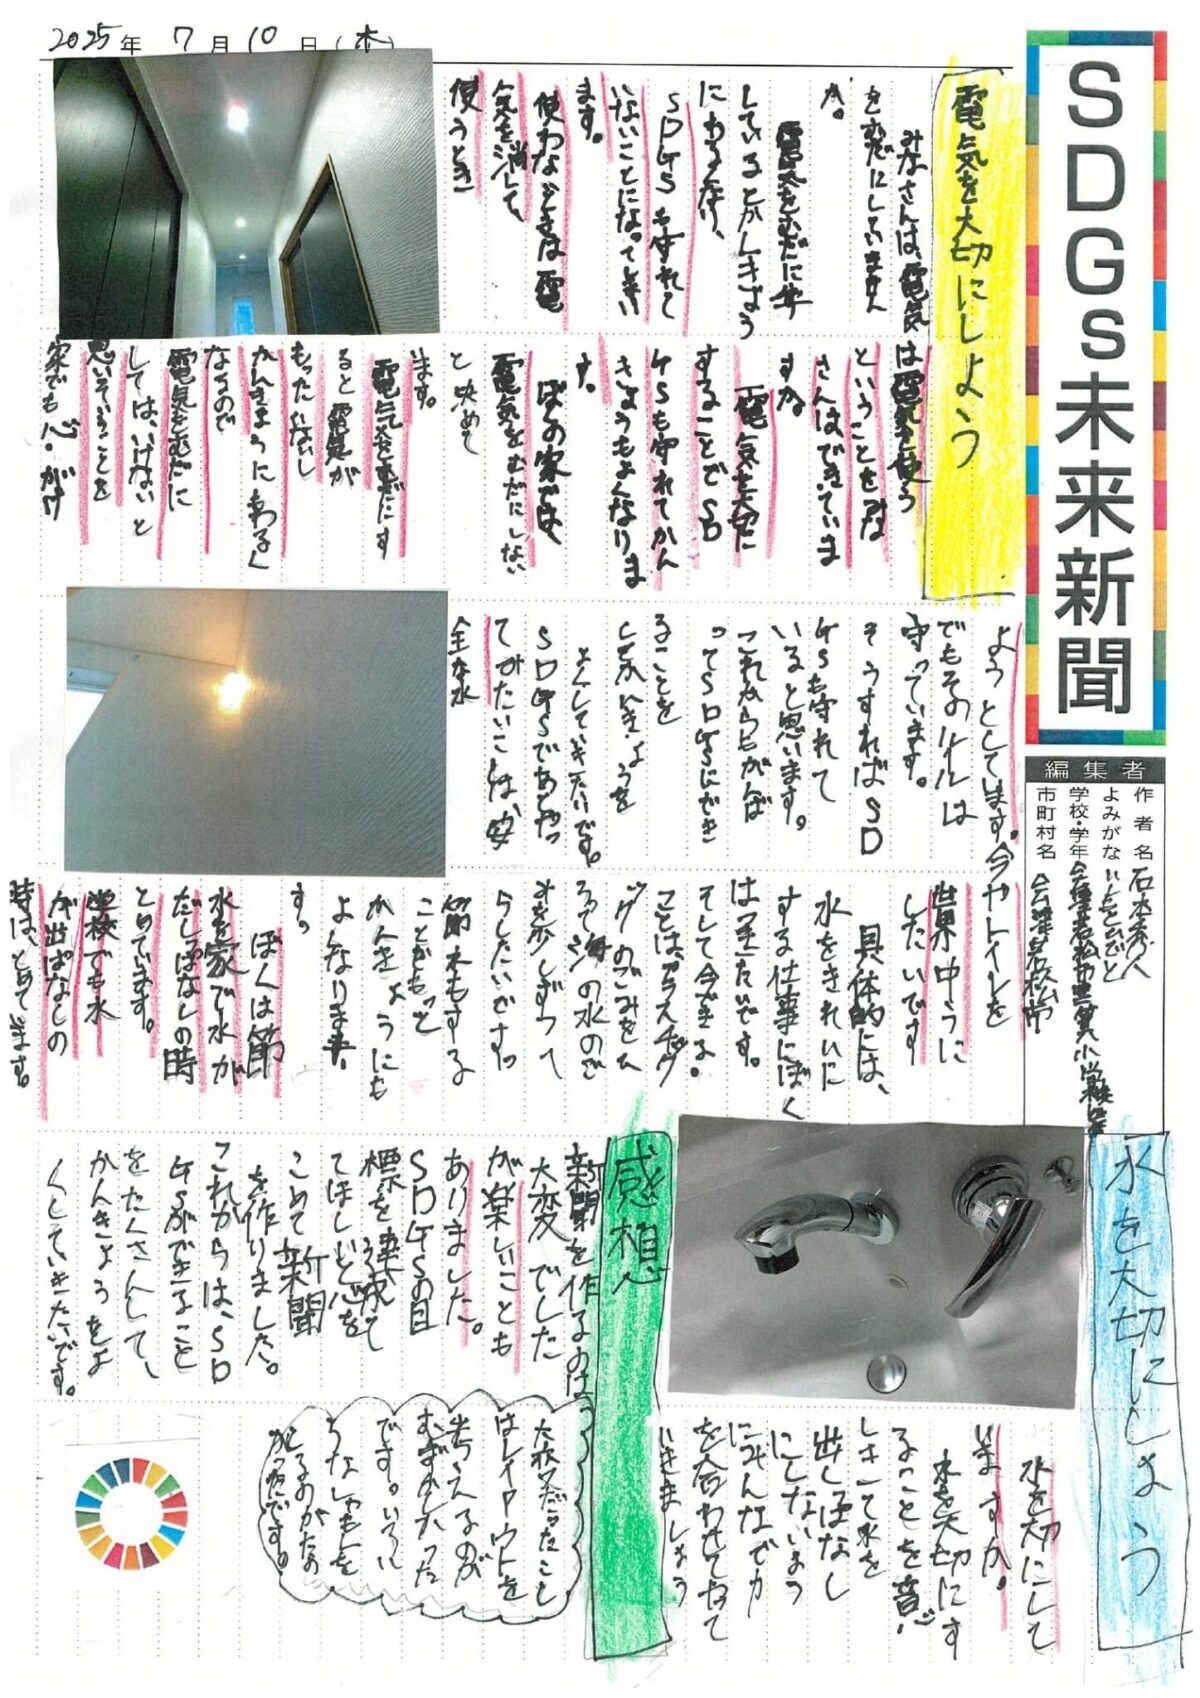 2025年 7月10日(木)
SDGs未来新聞
編集者
作者名 石本秀人
よみがな いしもと ひでと
学校・学年
市町村名 会津若松市
電気を大切にしよう
みなさんは、電気
をむだにしていません
か。
電気をむだに
しているとかんきょう
にわるい、
SDGsも守れて
いないことになってしまい
ます。
使わないときは電
気を消して、
使うとき
は電気を使う
ということをみな
さんはできていま
すか。
電気を大切に
することでSD
Gsも守れてかん
きょうもよくなりま
す。
ぼくの家では、
電気をむだにしない
と決めて
います。
電気をむだにす
ると電気が
もったいないし
かんきょうにもわるく
なるので
電気をむだに
しては、いけないと
思いそのことを
家でも心がけ
ようとしてます。
でもそのルールは
守っています。
そうすればSD
Gsも守れて
いると思います。
これからもがんば
ってSDGsにでき
ることを
しかんきょうを
よくしていきたいです。
SDGsであとやっ
てみたいことは、安
全な水
今やトイレを
世界中に
したいです
具体的には、
水をきれいに
する仕事にぼく
は
そして今できる
ことは、プラスチック
のごみをひ
ろって海の水のご
みを少しずつへ
らしたいです。
節水もする
こともっと
かんきょうにも
よくなります。
ぼくは節
水を家で水が
だしっぱなしの時
とめています。
学校でも水
が出ぱなしの
時は、とめています。
水を大切にしよう
水を大切にして
いますか。
水を大切にす
ることを意
しきして水を
出しっぱなし
にしないよう
にみんなで力
を合わせてやって
いきましょう
感想
新聞を作るのは
大変でした
が楽しいことも
ありました。
SDGsの目
標を達成して
てほしいと心を
こめて新聞
を作りました。
これからは、SD
Gsができること
をたくさんして、
かんきょうをよ
くしていきたいです。
大変だったこと
はレイアウトを
考えるのが
むずかしかった
です。いろい
ろなしゃしんを
とるのがたの
しかったです。